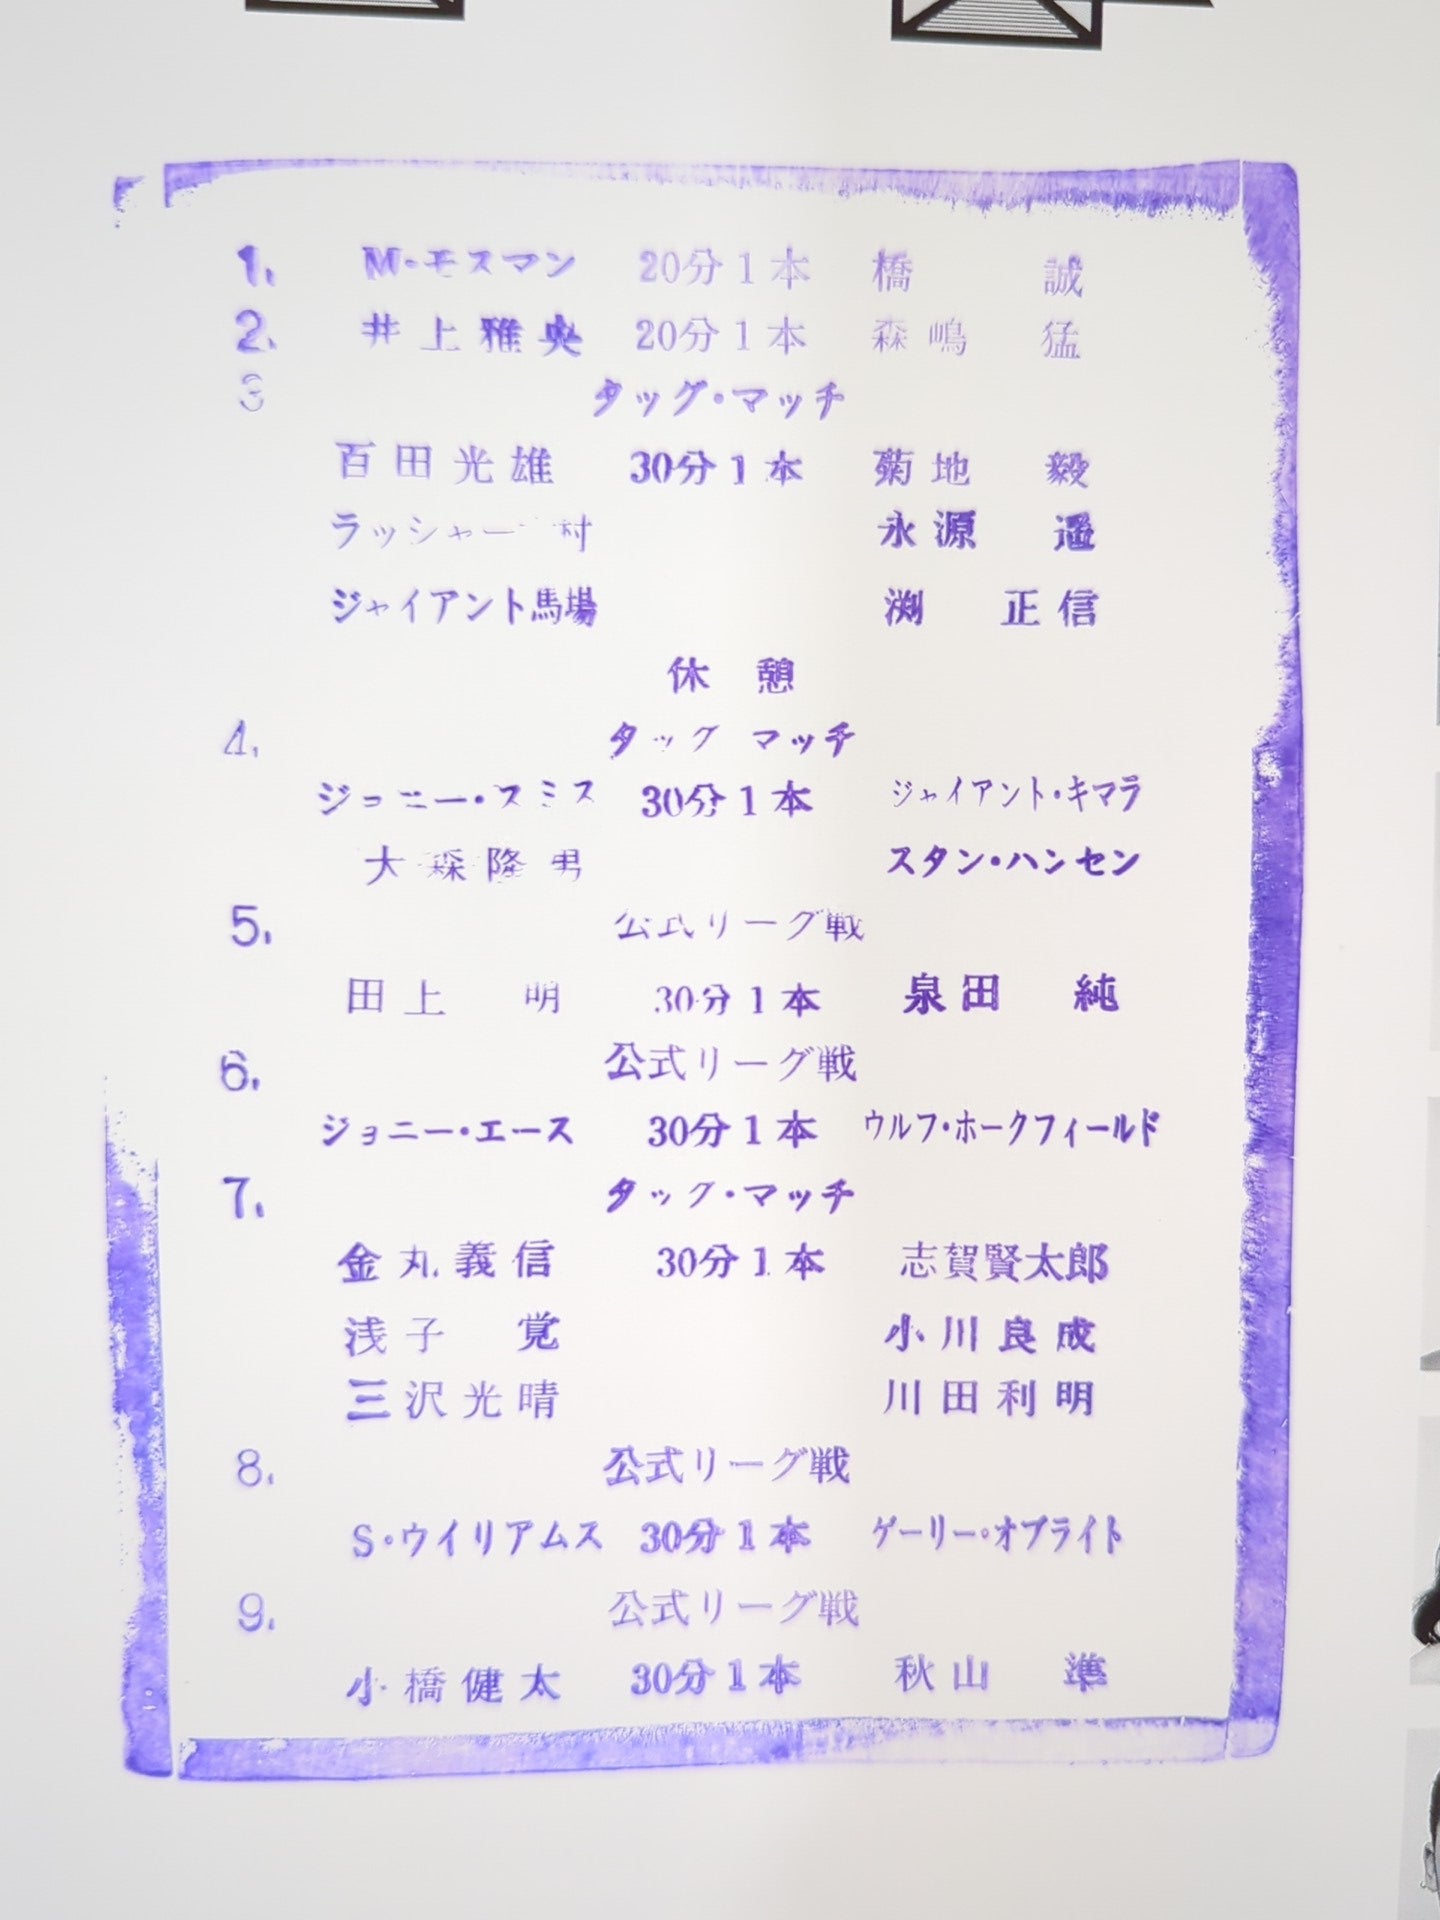 1. M・モスマン 20分1本 橋 誠
2. 井上雅央 20分1本 森嶋 猛
3 タッグ・マッチ
百田光雄 30分1本 菊地 毅
ラッシャー 村 永源 遥
ジャイアント馬場 渕 正信
休憩
4. タッグ マッチ
ジョニー・スミス 30分1本 ジャイアント・キマラ
大森隆男 スタン・ハンセン
5. 公式リーグ戦
田上 明 30分1本 泉田 純
6. 公式リーグ戦
ジョニー・エース 30分1本 ウルフ・ホークフィールド
7. タッグ・マッチ
金丸義信 30分1本 志賀賢太郎
浅子 覚 小川良成
三沢光晴 川田利明
8. 公式リーグ戦
S・ウイリアムス 30分1本 ゲーリー・オブライト
9. 公式リーグ戦
小橋健太 30分1本 秋山 準